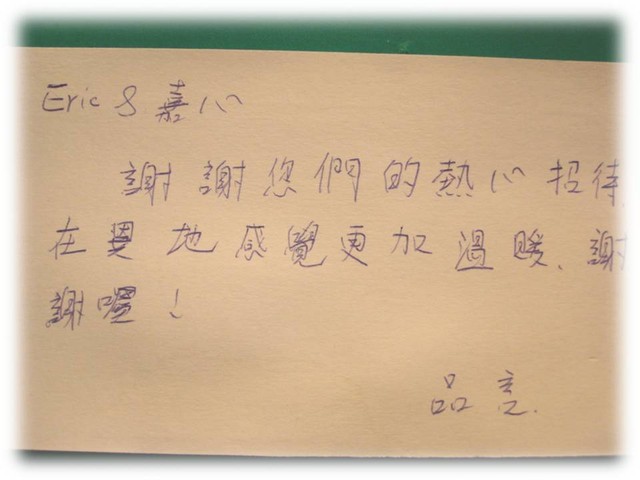 Eric & 嘉心
謝謝您們的熱心招待,
在異地感覺更加溫暖、謝
謝喔!
品言.